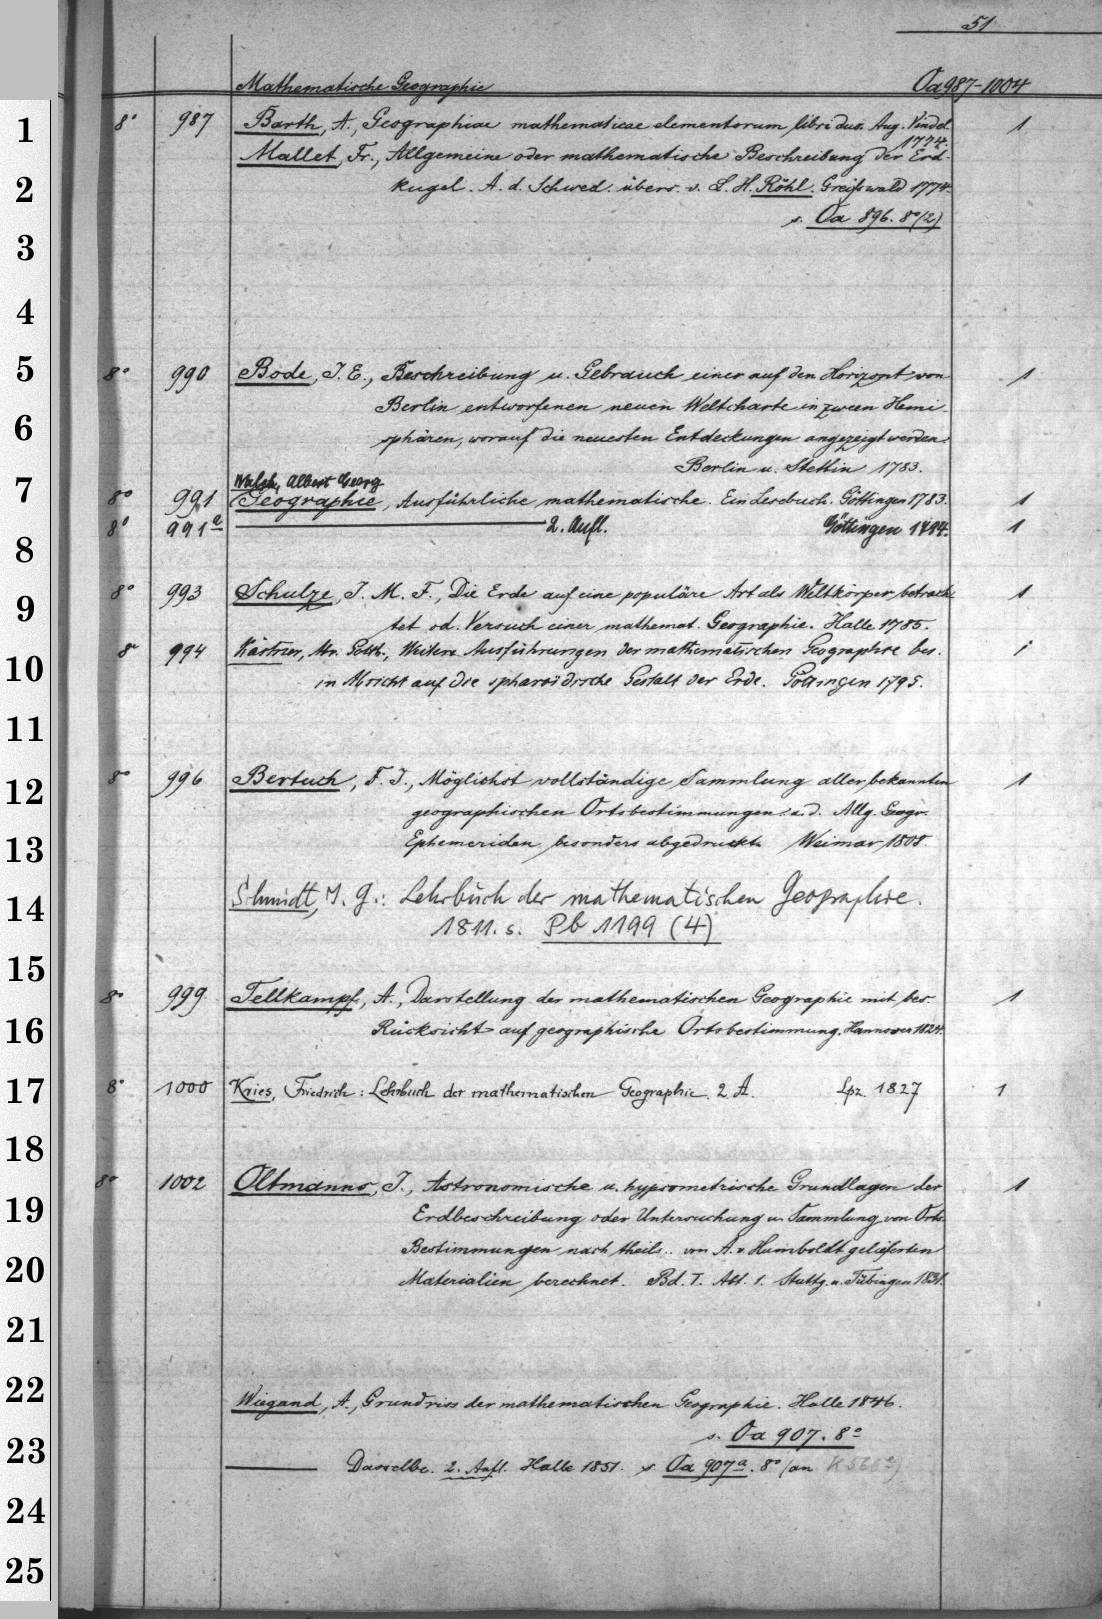 51
Mathematische Geographie Oa 987-1004
1 8° 987 Barth, A., Geographiae mathematicae elementorum libri duo. Aug. Vindel. 1774. 1
Mallet, Fr., Allgemeine oder mathematische Beschreibung der Erd-
2 kugel. A. d. Schwed. übers. v. L. H. Röhl. Greifswald 1774.
s. Oa 896. 8°(2)
3
4
5 8° 990 Bode, J. E., Beschreibung u. Gebrauch einer auf den Horizont von 1
Berlin entworfenen neuen Weltcharte in zween Hemi-
6 sphären, worauf die neuesten Entdeckungen angezeigt werden.
Berlin u. Stettin 1783.
Walch, Albert Georg
7 8° 991 Geographie, Ausführliche mathematische. Ein Lesebuch. Göttingen 1783. 1
8° 991a 2. Aufl. Göttingen 1794. 1
8
9 8° 993 Schulze, J. M. F., Die Erde auf eine populäre Art als Weltkörper betrach- 1
tet od. Versuch einer mathemat. Geographie. Halle 1785.
10 8° 994 Kästner, Abr. Gotth., Weitere Ausführungen der mathematischen Geographie bes. 1
in Absicht auf die sphäroidische Gestalt der Erde. Göttingen 1795.
11
12 8° 996 Bertuch, F. J., Möglichst vollständige Sammlung aller bekannten 1
geographischen Ortsbestimmungen: a. d. Allg. Geogr.
13 Ephemeriden besonders abgedruckt. Weimar 1808.
14 Schmidt, J. G.: Lehrbuch der mathematischen Geographie.
1811. s. Pb 1199 (4)
15
8° 999 Tellkampf, A., Darstellung der mathematischen Geographie mit bes. 1
16 Rücksicht auf geographische Ortsbestimmung. Hannover 1824.
17 8° 1000 Kries, Friedrich: Lehrbuch der mathematischen Geographie. 2. A. Lpz. 1827 1
18
8° 1002 Oltmanns, J., Astronomische u. hypsometrische Grundlagen der 1
19 Erdbeschreibung oder Untersuchung u. Sammlung von Orts-
Bestimmungen nach theils.. von A. v. Humboldt gelieferten
20 Materialien berechnet. Bd. I. Abt. 1. Stuttg. u. Tübingen 1831.
21
22 Wiegand, A., Grundriss der mathematischen Geographie. Halle 1846.
s. Oa 907. 8°
23 Dasselbe. 2. Aufl. Halle 1851. s. Oa 907a. 8° (an
24
25